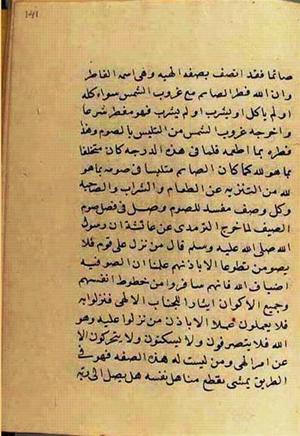 ١٤١
صائما فقد اتصف بصفه الهيه وهى اسمه الفاطر
وان الله فطر الصايم مع غروب الشمس سواء كله
او لم ياكل او يشرب او لم يشرب فهو مفطر شرعا
واخرجه غروب الشمس من التلبس بالصوم وهذا
فطره بما اطعمه فلما فى هذه الدرجه كان متخلقا
بما هو لله كما كان الصايم متلبسا فى صومه بما هو
لله من التنزيه عن الطعام والشراب والصاحبة
وكل وصف مفسد للصوم وصــل فى فضل صوم
الضيف لما خرج الترمذى عن عائشة ان رسول
الله صلى الله عليه وسلم قال من نزل على قوم فلا
يصومن تطوعا الا باذنهم علمنا ان الصوفيه
اضياف الله فانهم سافروا من حظوظ انفسهم
وجميع الاكوان ايثارا للجناب الالهى فنزلوا به
فلا يعملون عملا الا باذن من نزلوا عليه وهو
الله فلا يتصرفون ولا يسكنون ولا يتحركون الا
عن امر الهى ومن ليست له هذه الصفه فهو فى
الطريق يمشى يقطع مناهل نفسه هل يصل الى ربه